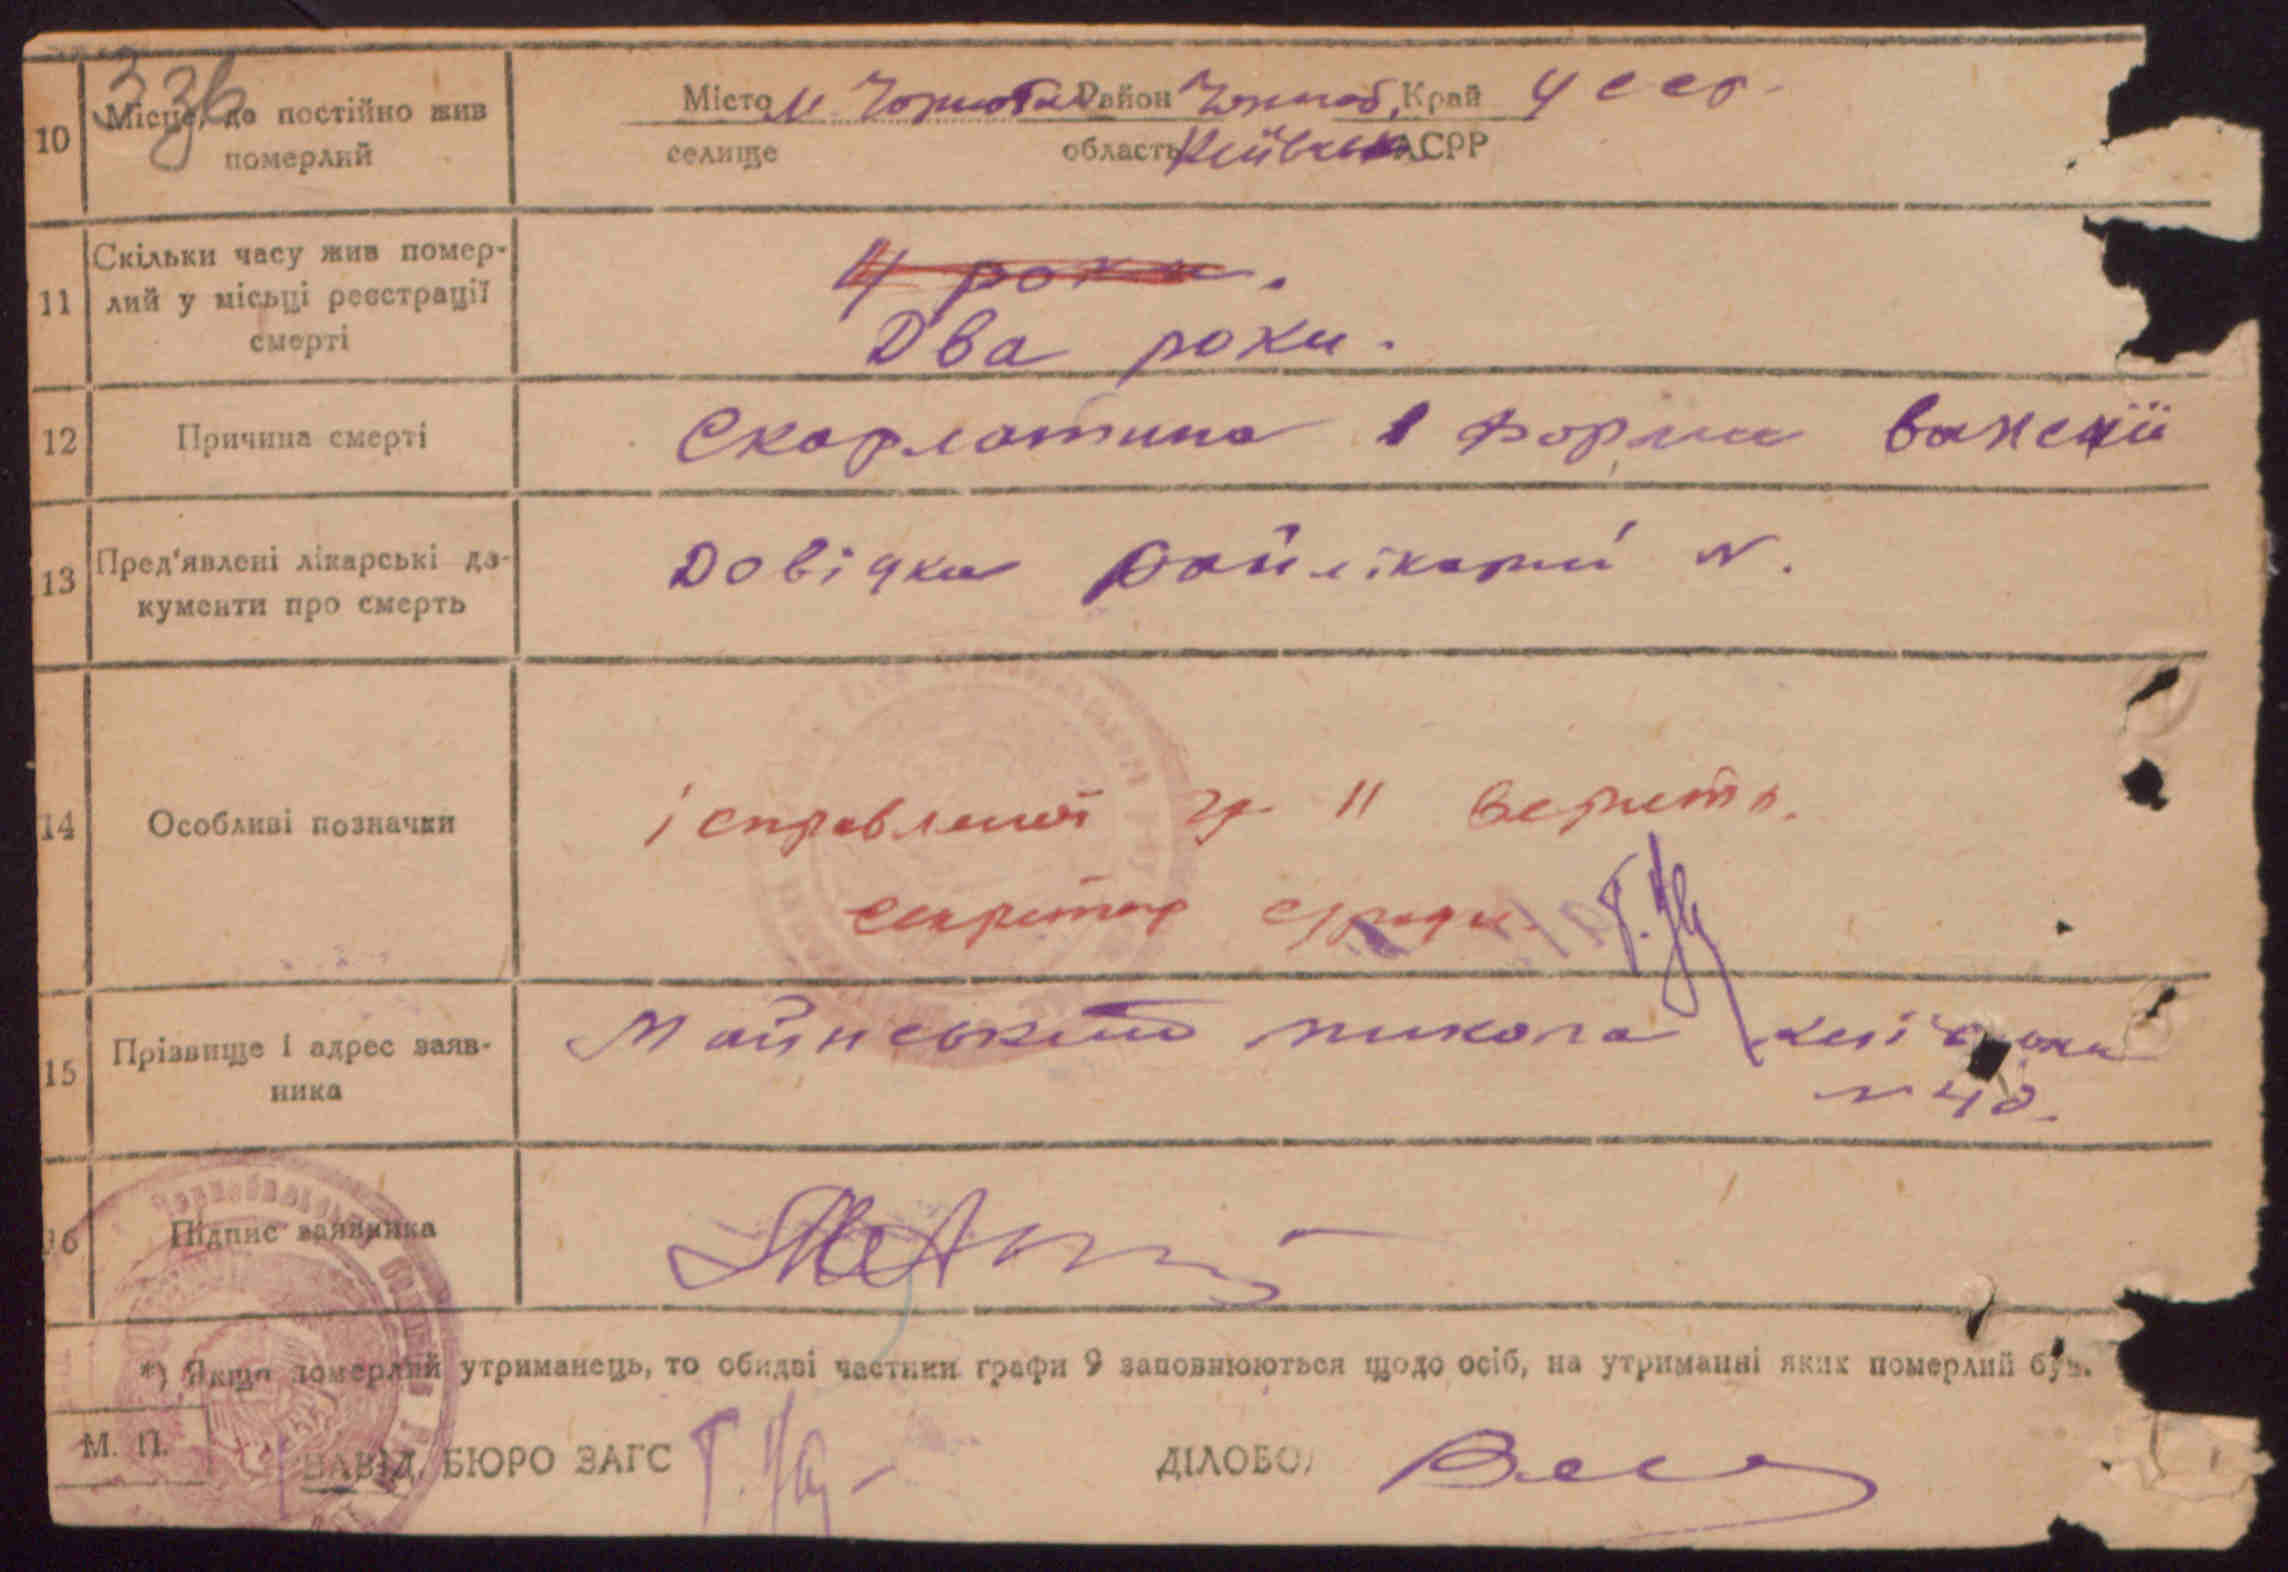 33б
10 Місце, де постійно жив померлий
Місто м. Чорнобиль Район Чорноб. Край УССР.
селище область Київська АСРР
11 Скільки часу жив помер-
лий у місьці реєстрації
смерті
4 роки.
Два роки.
12 Причина смерті
Скарлатина форми важкої
13 Пред'явлені лікарські до-
кументи про смерть
Довідка райлікарні №.
14 Особливі позначки
ісправленої гр. 11 верить.
секретар с/ради
15 Прізвище і адрес заяв-
ника
Майнський микола
№ 40.
16 Підпис заявника
*) Якщо померлий утриманець, то обидві частини графи 9 заповнюються щодо осіб, на утриманні яких померлий був.
М. П.
ЗАВІД. БЮРО ЗАГС
ДІЛОВО